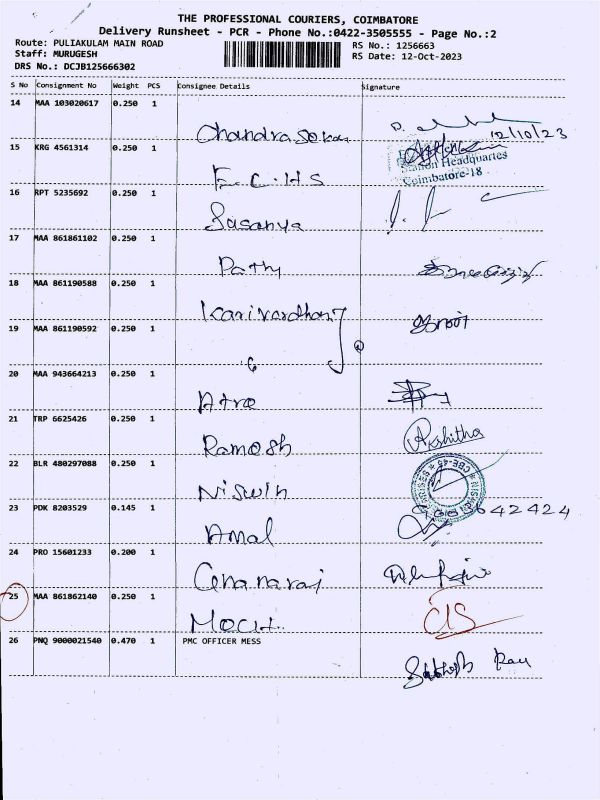 THE PROFESSIONAL COURIERS, COIMBATORE
Delivery Runsheet - PCR - Phone No.:0422-3505555 - Page No.:2
Route: PULIAKULAM MAIN ROAD
RS No.: 1256663
Staff: MURUGESH
RS Date: 12-Oct-2023
DRS No.: DCJB125666302
S No Consignment No Weight PCS Consignee Details Signature
14 MAA 103020617 0.250 1
Chandrasekar
12/10/23
15 KRG 4561314 0.250 1
Station Headquartes
Coimbatore-18
E.C.H.S
16 RPT 5235692 0.250 1
Sasanya
17 MAA 861861102 0.250 1
Pathy
18 MAA 861190588 0.250 1
Karivardhan
19 MAA 861190592 0.250 1
20 MAA 943664213 0.250 1
Atra
21 TRP 6625426 0.250 1
Akshitha
Ramesh
22 BLR 480297088 0.250 1
CBE-45
Niswin
23 PDK 8203529 0.145 1
Amal
24 PRO 15601233 0.200 1
Gnanaraj
25 MAA 861862140 0.250 1
CIS
26 PNQ 9000021540 0.470 1 PMC OFFICER MESS